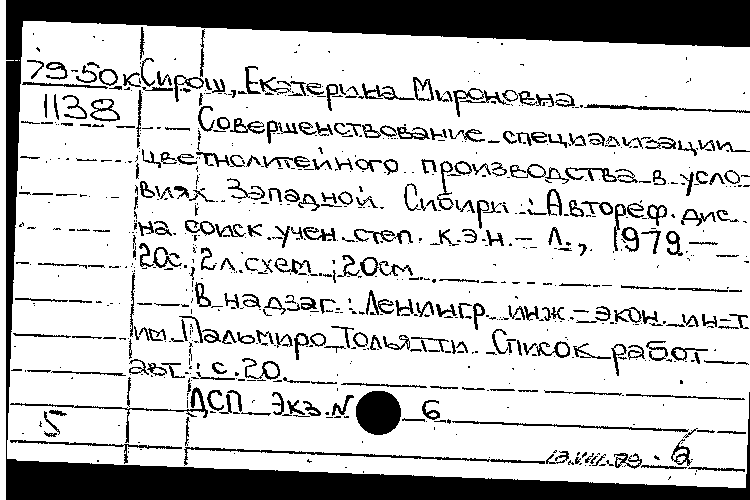 79-50к Сирош, Екатерина Мироновна
1138 Совершенствование специализации
цветнолитейного производства в усло-
виях Западной Сибири : Автореф. дис.
на соиск. учен. степ. к.э.н. – Л., 1979. –
20с., 2 л.схем ; 20см.
В надзаг.: Ленингр. инж.-экон. ин-т
им. Пальмиро Тольятти. Список работ
авт.: с.20.
ДСП. Экз. N 6.
5
6